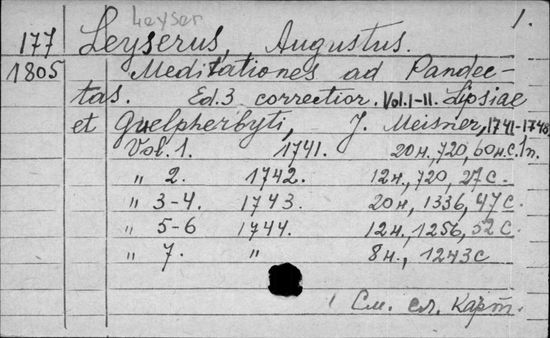 Leyser
1.
177 Leyserus, Augustus.
1805 Meditationes ad Pandec-
tas. Ed. 3 correctior. Vol. I-II. Lipsiae
et Guelpherbyti, J. Meisner, 1741-1748
Vol. 1. 1741. 20 н., 720, 60 н.с. 1 п.
" 2. 1742. 12 н., 720, 27 с.
" 3-4. 1743. 20 н., 1336, 47 с.
" 5-6 1744. 12 н., 1256, 52 с.
" 7. " 8 н., 1243 с
См. сл. карт.